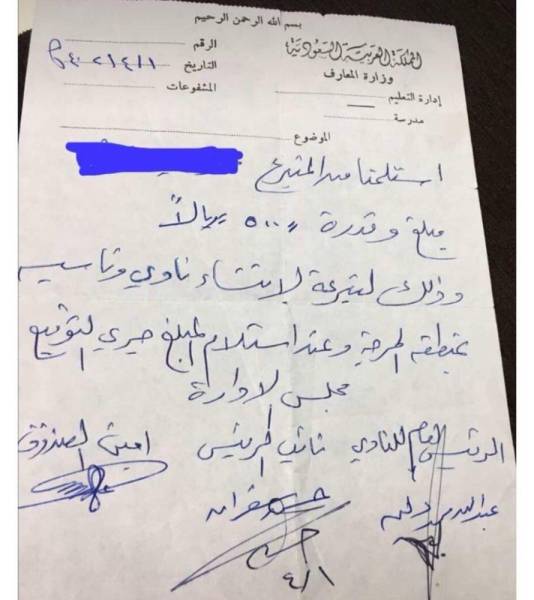 بسم الله الرحمن الرحيم
المملكة العربية السعودية
وزارة المعارف
إدارة التعليم
مدرسة
الرقم
التاريخ ١/٤/٢٠
المشفوعات
الموضوع
استلمنا من المتبرع
مبلغ وقدرة ٥٠٠٠ ريالاً
وذلك لتبرعة لانتشاء نادي وتاسيسه
بمنطقه الحرجة وعند استلام المبلغ جرى التوقيع
مجلس الادارة
الرئيس العام للنادي نائب الرئيس امين الصندوق
٤/١